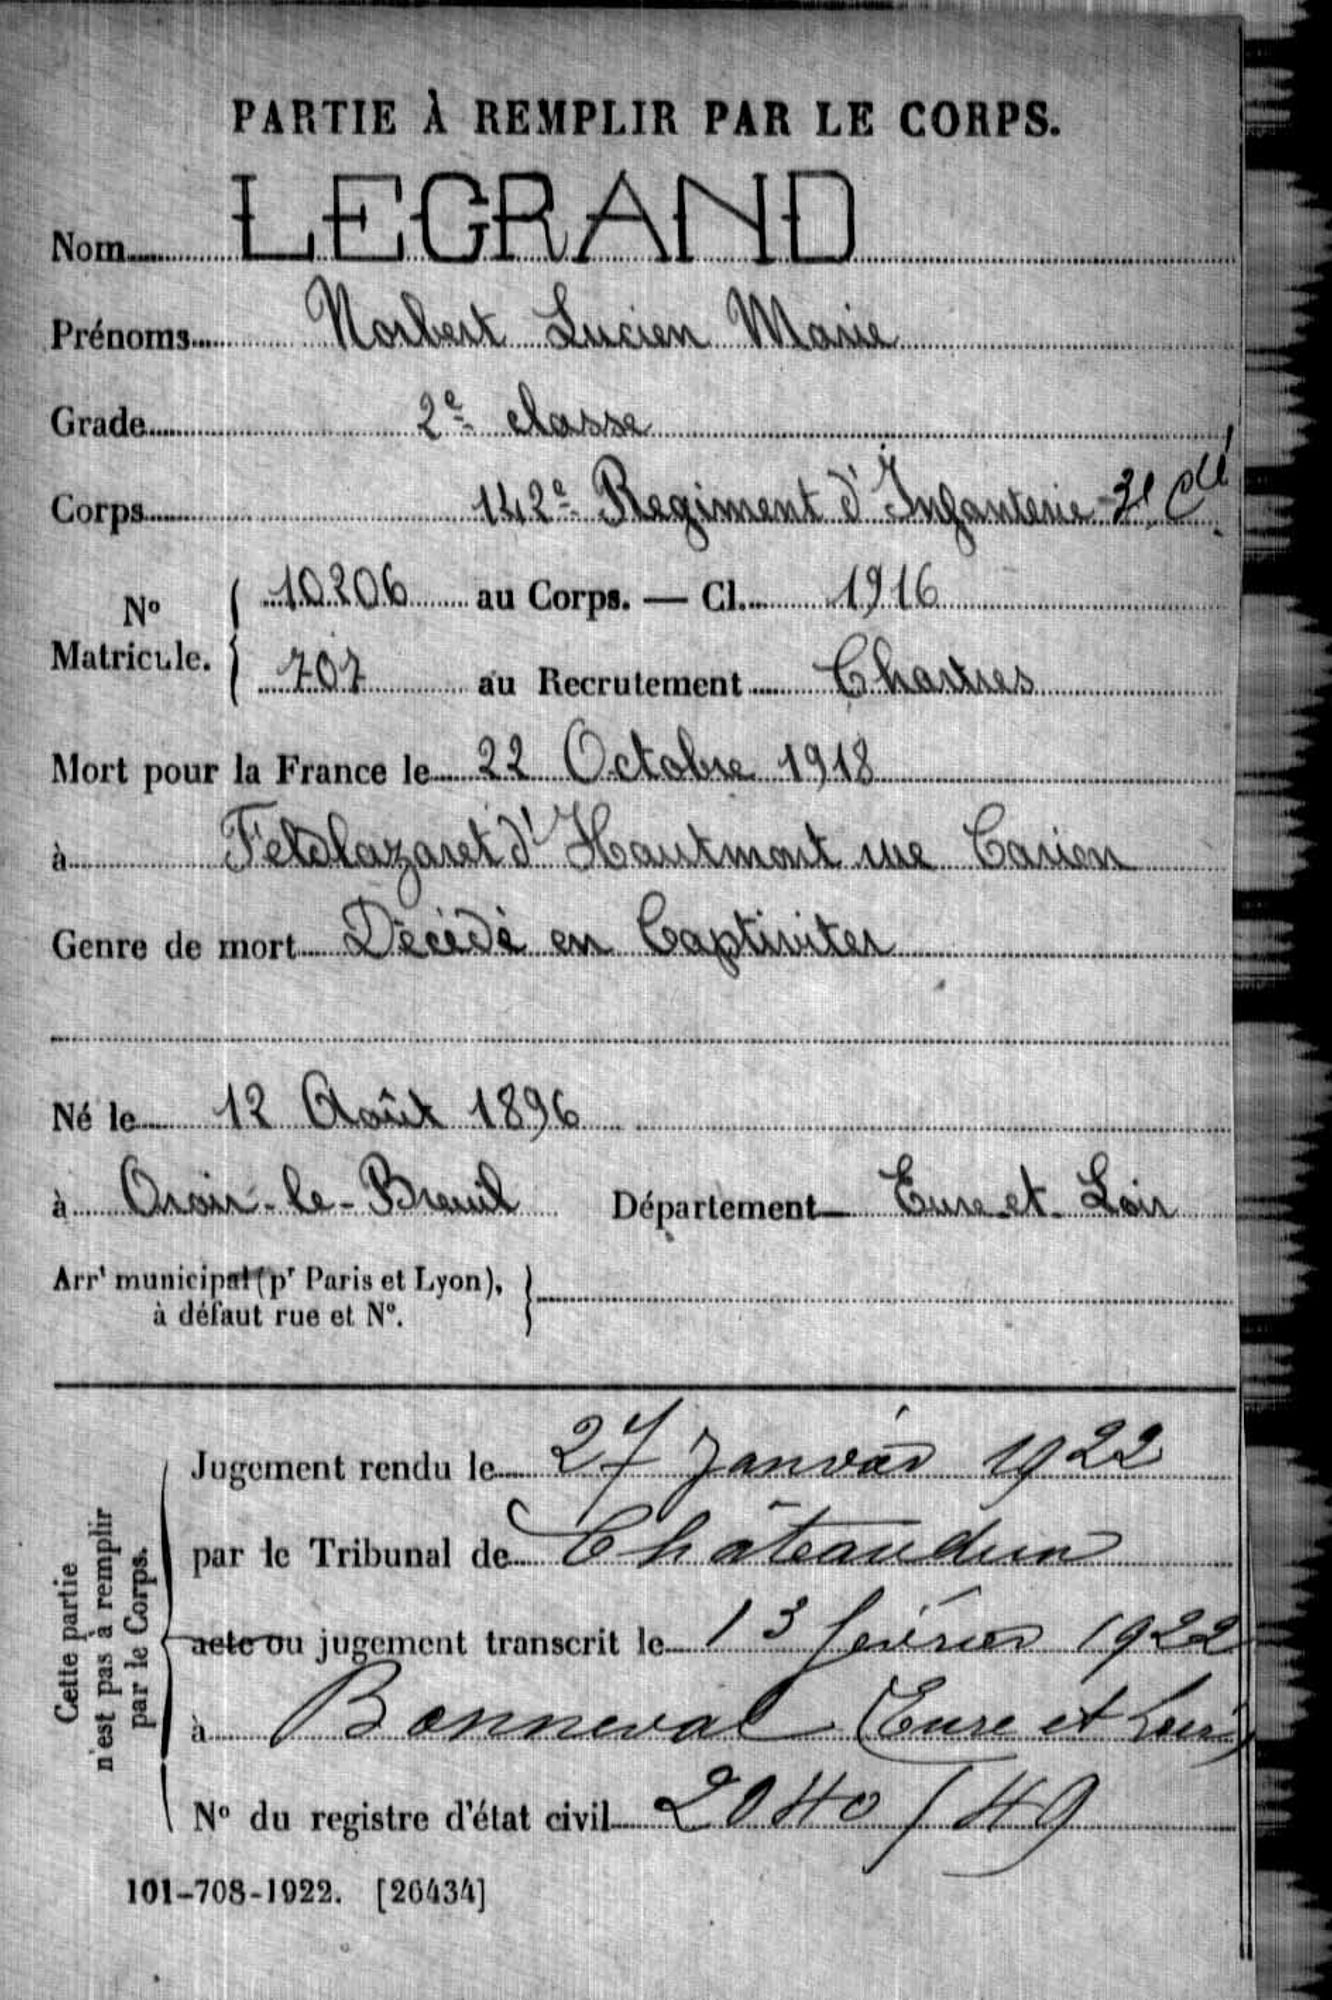 PARTIE À REMPLIR PAR LE CORPS.
Nom LEGRAND
Prénoms Norbert Lucien Marie
Grade 2e classe
Corps 142e Regiment d'Infanterie - 3e Cie
No Matricule. 10206 au Corps. — Cl. 1916
707 au Recrutement Chartres
Mort pour la France le 22 Octobre 1918
à Feldlazaret d'Hautmont rue Carion
Genre de mort Décédé en Captiviter
Né le 12 Août 1896
à Oroir-le-Breuil Département Eure-et-Loir
Arrt municipal (pr Paris et Lyon),
à défaut rue et No.
Cette partie
n'est pas à remplir
par le Corps.
Jugement rendu le 27 Janvier 1922
par le Tribunal de Châteaudun
acte ou jugement transcrit le 13 février 1922
à Bonneval (Eure et Loir)
No du registre d'état civil 2040/49
101-708-1922. [26434]